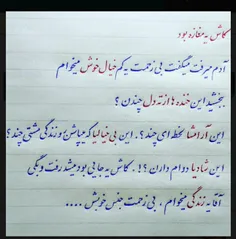 کاش یه مغازه بود
آدم میرفت میگفت بی زحمت یکم خیال خوش میخوام
ببخشید این خنده ها از ته دل چندن ؟
این آرامشا لحظه ای چند ؟ . این بی خیالیا که میپاشن رو زندگی مشتی چند ؟
این شادیا دوام دارن ؟! . کاش یه جایی بود میشد رفت و بگی
آقا یه زندگی میخوام . بی زحمت جنس خوبش ....